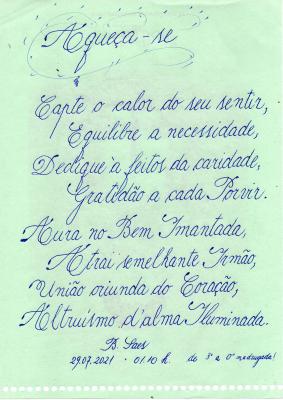 Aqueça-se
Capte o calor do seu sentir,
Equilibre a necessidade,
Dedique à feitos da caridade,
Gratidão a cada Porvir.
Aura no Bem Imantada,
Atrai semelhante Irmão,
União oriunda do Coração,
Altruísmo d'alma Iluminada.
B. Saes
29.07.2021 - 01.10 h. de 3° a 0° madrugada!